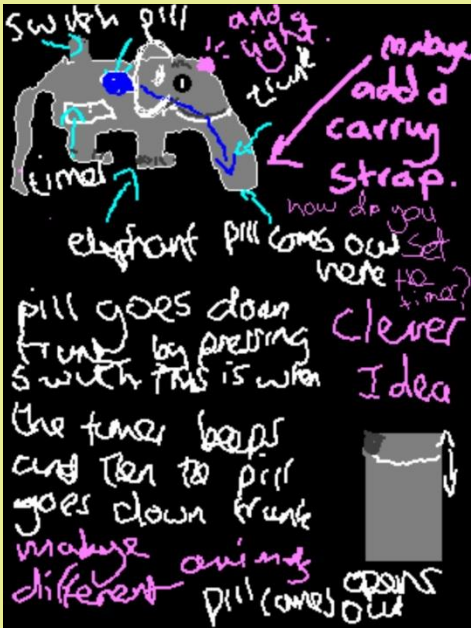 switch pill
and a
light.
trunk
mabye
add a
carry
strap.
timer
how do you
set
the
timer?
elephant pill comes out
here
pill goes down
trunk by pressing
switch This is when
the timer beeps
and then the pill
goes down trunk
Clever
Idea
mabye
different animals
opens
pill comes out